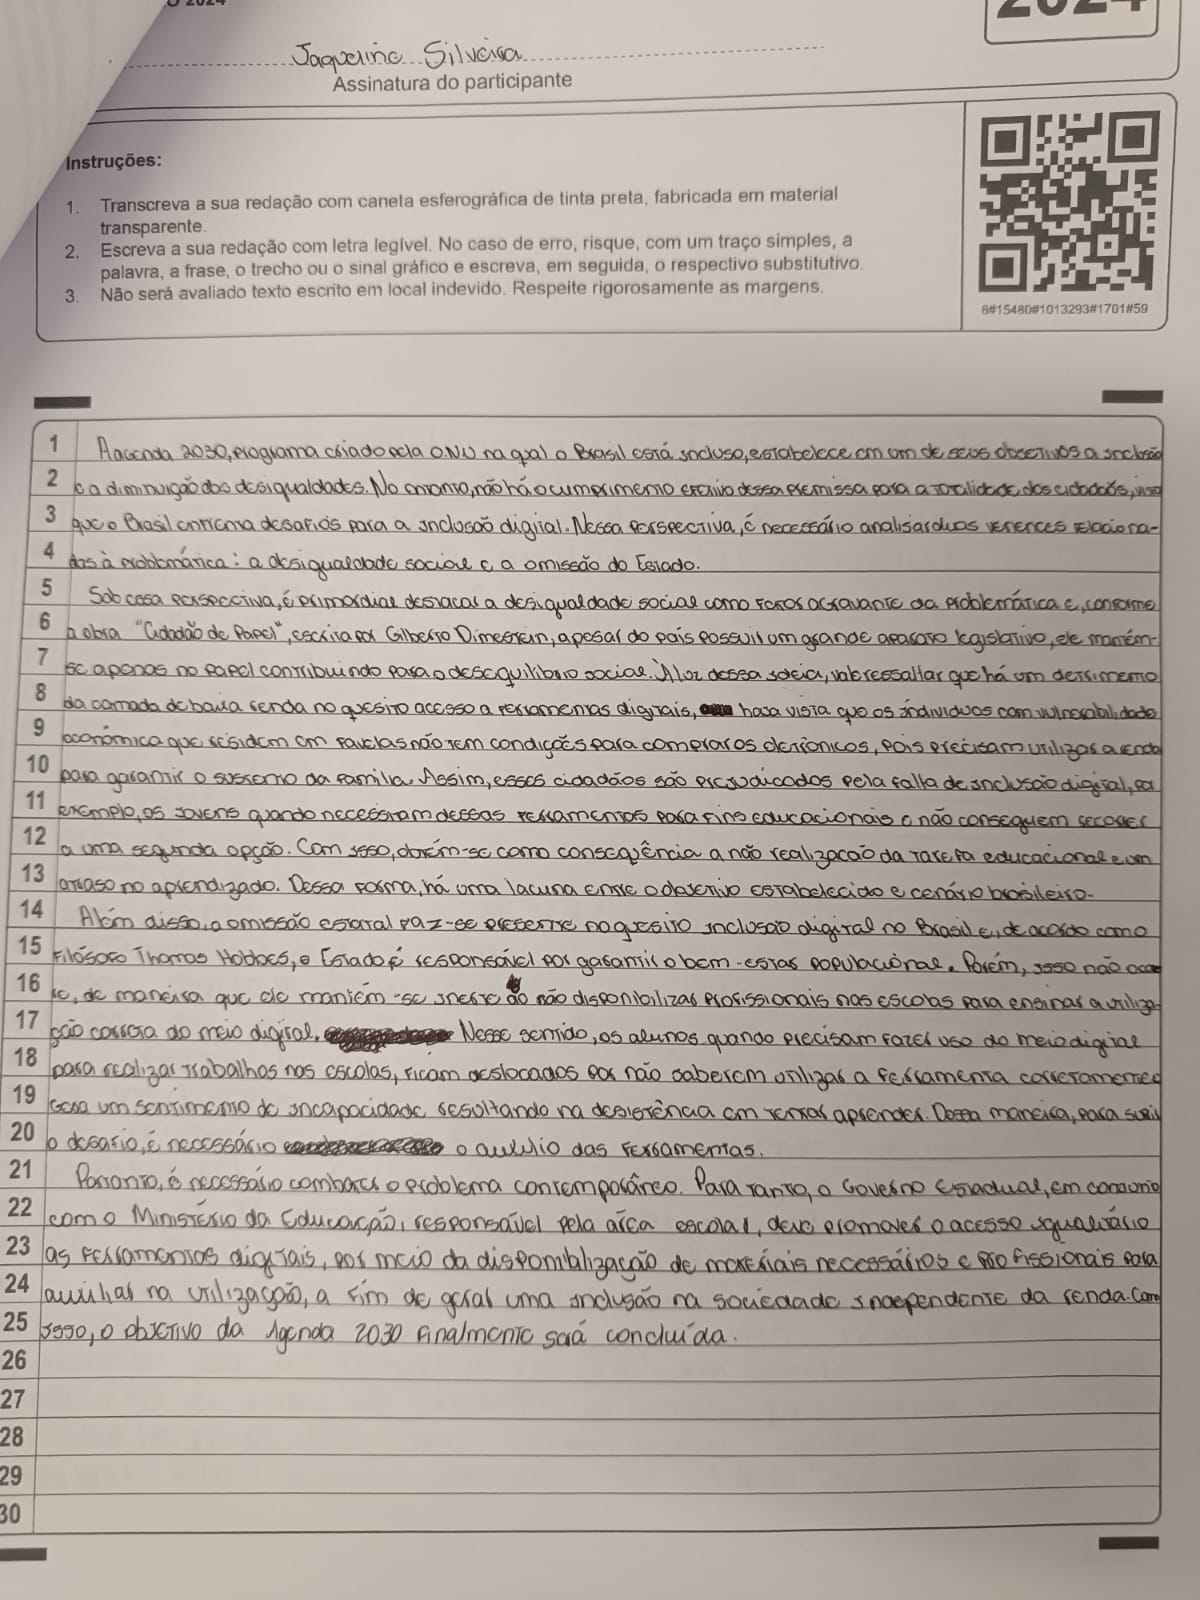 2024
2024
Jaqueline Silveira
Assinatura do participante
Instruções:
1. Transcreva a sua redação com caneta esferográfica de tinta preta, fabricada em material
transparente.
2. Escreva a sua redação com letra legível. No caso de erro, risque, com um traço simples, a
palavra, a frase, o trecho ou o sinal gráfico e escreva, em seguida, o respectivo substitutivo.
3. Não será avaliado texto escrito em local indevido. Respeite rigorosamente as margens.
6#15480#1013293#1701#59
1 A agenda 2030, programa criado pela ONU na qual o Brasil está incluso, estabelece em um de seus objetivos a inclusão
2 e a diminuição das desigualdades. No entanto, não há o cumprimento efetivo dessa premissa para a totalidade dos cidadãos, visto
3 que o Brasil enfrenta desafios para a inclusão digital. Nessa perspectiva, é necessário analisar duas vertentes relaciona-
4 das à problemática: a desigualdade social e a omissão do Estado.
5 Sob essa perspectiva, é primordial destacar a desigualdade social como fator agravante da problemática e, conforme
6 a obra "Cidadão de Papel", escrita por Gilberto Dimestein, apesar do país possuir um grande aparato legislativo, ele mantém-
7 se apenas no papel contribuindo para o desequilíbrio social. À luz dessa ideia, vale ressaltar que há um detrimento
8 da camada de baixa renda no quesito acesso a ferramentas digitais, haja vista que os indivíduos com vulnerabilidade
9 econômica que residem em favelas não tem condições para comprar os eletrônicos, pois precisam utilizar a renda
10 para garantir o sustento da família. Assim, esses cidadãos são prejudicados pela falta de inclusão digital, por
11 exemplo, os jovens quando necessitam dessas ferramentas para fins educacionais e não conseguem recorrer
12 a uma segunda opção. Com isso, obtém-se como consequência a não realização da tarefa educacional e um
13 atraso no aprendizado. Dessa forma, há uma lacuna entre o objetivo estabelecido e cenário brasileiro.
14 Além disso, a omissão estatal faz-se presente no quesito inclusão digital no Brasil e, de acordo com o
15 filósofo Thomas Hobbes, o Estado é responsável por garantir o bem-estar populacional. Porém, isso não ocor
16 re, de maneira que ele mantém-se inerte ao não disponibilizar profissionais nas escolas para ensinar a utiliza-
17 ção correta do meio digital. Nesse sentido, os alunos quando precisam fazer uso do meio digital
18 para realizar trabalhos nas escolas, ficam deslocados por não saberem utilizar a ferramenta corretamente e
19 gera um sentimento de incapacidade resultando na desistência em tentar aprender. Dessa maneira, para suprir
20 o desafio, é necessário o auxílio das ferramentas.
21 Portanto, é necessário combater o problema contemporâneo. Para tanto, o Governo Estadual, em conjunto
22 com o Ministério da Educação, responsável pela área escolar, deve promover o acesso igualitário
23 as ferramentas digitais, por meio da disponibilização de materiais necessários e profissionais para
24 auxiliar na utilização, a fim de gerar uma inclusão na sociedade independente da renda. Com
25 isso, o objetivo da Agenda 2030 finalmente será concluída.
26
27
28
29
30